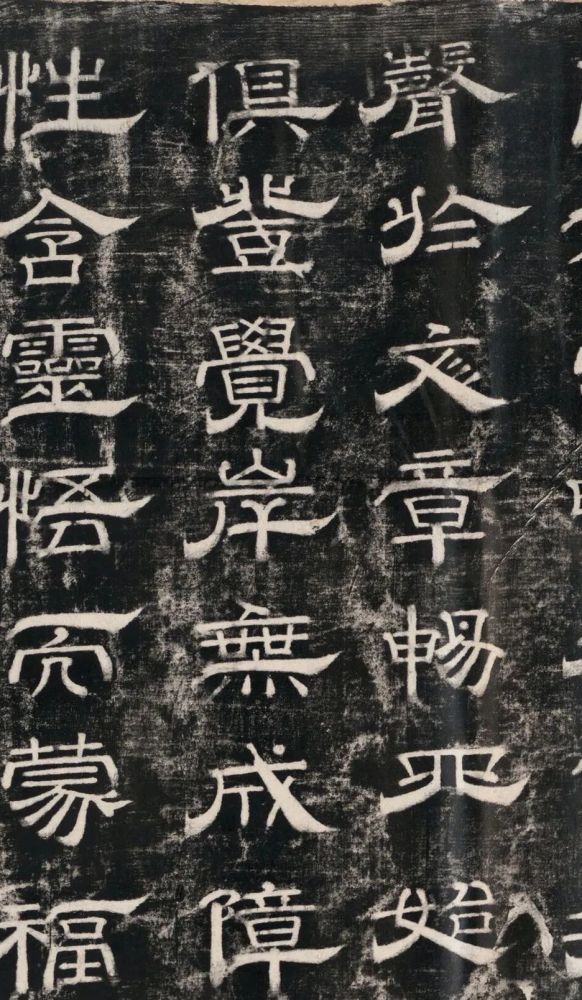 聲於彣章暢正始
俱登覺岸無成障
性含靈悟而蒙福